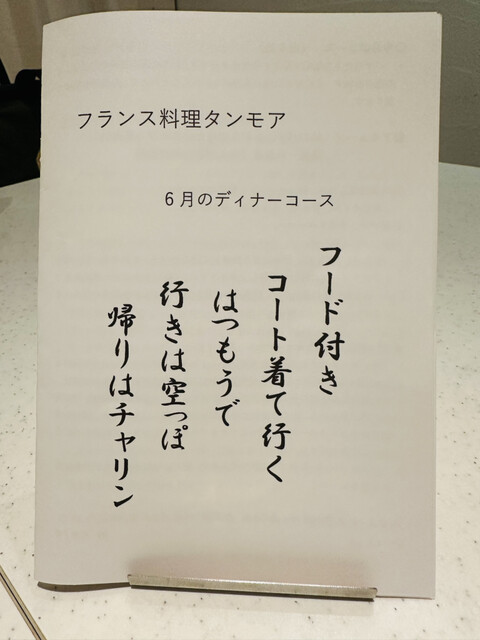 フランス料理タンモア
6月のディナーコース
フード付き
コート着て行く
はつもうで
行きは空っぽ
帰りはチャリン